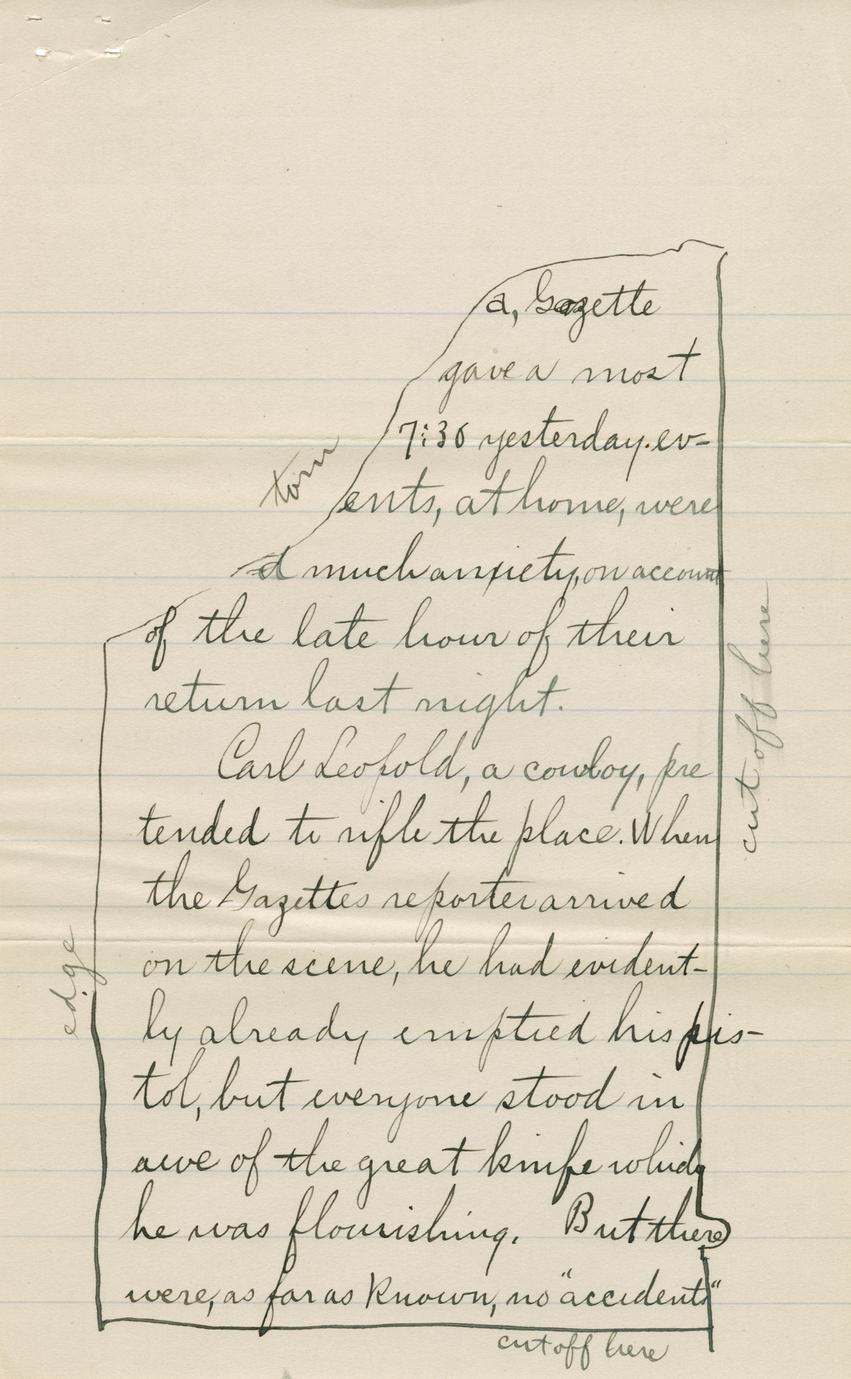 a, Gazette
gave a most
7:30 yesterday. ev-
torn
ents, at home, were
d much anxiety, on account
of the late hour of their
return last night.
Carl Leopold, a cowboy, pre
tended to rifle the place. When
the Gazettes reporter arrived
on the scene, he had evident-
ly already emptied his pis-
tol, but everyone stood in
awe of the great knife which
he was flourishing. But there
were, as far as known, no "accidents"
cut off here
edge
cut off here